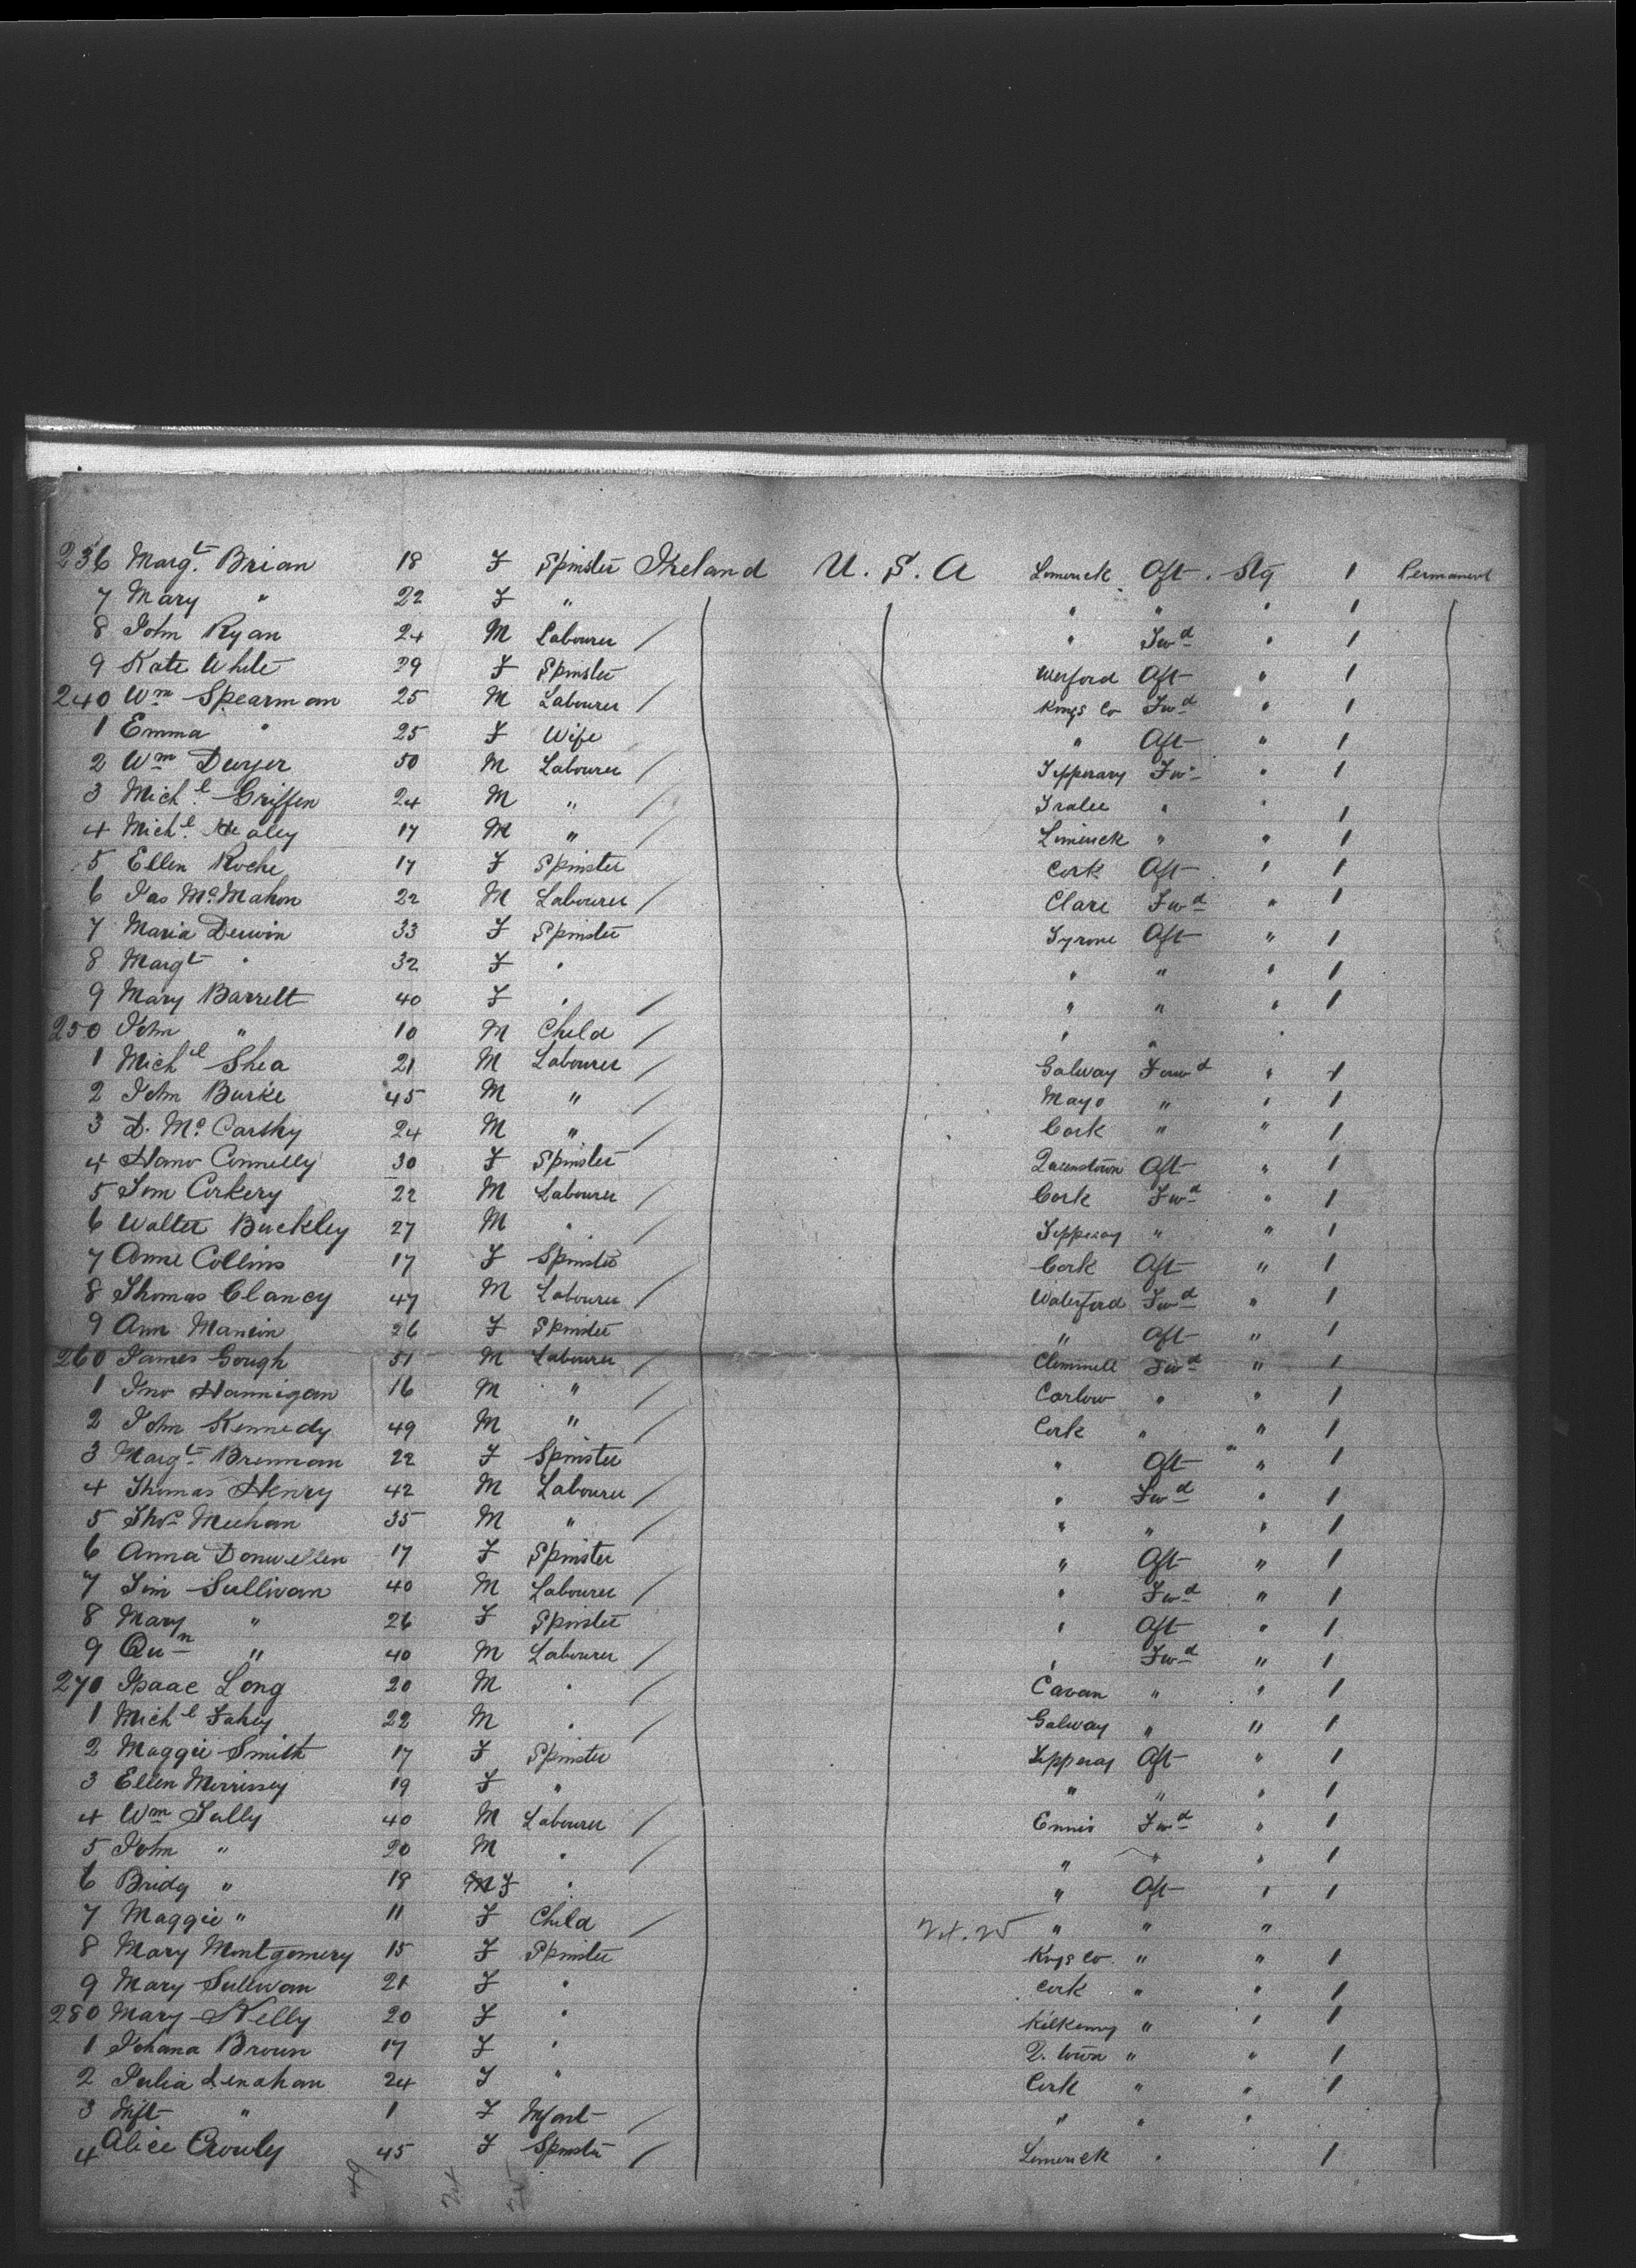 236 Margt. Brian 18 F Spinster Ireland U. S. A Limerick Aft. Stg 1 Permanent
7 Mary " 22 F " " " " 1
8 John Ryan 24 M Labourer / " Fwd " 1
9 Kate White 29 F Spinster Wexford Aft " 1
240 Wm Spearman 25 M Labourer / Kings Co Fwd " 1
1 Emma " 25 F Wife " Aft " 1
2 Wm Dwyer 50 M Labourer / Tipperary Fwd " 1
3 Michl. Griffen 24 M " / Tralee " " 1
4 Michl. Healey 17 M " / Limerick " " 1
5 Ellen Roche 17 F Spinster Cork Aft " 1
6 Jas McMahon 22 M Labourer / Clare Fwd " 1
7 Maria Derwin 33 F Spinster Tyrone Aft " 1
8 Margt " 32 F " " " " 1
9 Mary Barrett 40 F " / " " " 1
250 John " 10 M Child / " " "
1 Michl Shea 21 M Labourer / Galway Forwd " 1
2 John Burke 45 M " / Mayo " " 1
3 D. McCarthy 24 M " / Cork " " 1
4 Hano Connelly 30 F Spinster Queenstown Aft " 1
5 Tim Corkery 22 M Labourer / Cork Fwd " 1
6 Walter Buckley 27 M " / Tipperay " " 1
7 Anne Collins 17 F Spinster Cork Aft " 1
8 Thomas Clancy 47 M Labourer / Waterford Fwd " 1
9 Ann 26 F Spinster " Aft " 1
260 James Gough 51 M Labourer / Clonmell Fwd " 1
1 Jno Hannigan 16 M " / Carlow " " 1
2 John Kennedy 49 M " / Cork " " 1
3 Margt Brennan 22 F Spinster " Aft " 1
4 Thomas Henry 42 M Labourer / " Fwd " 1
5 Thos Meehan 35 M " / " " " 1
6 Anna 17 F Spinster " Aft " 1
7 Tim Sullivan 40 M Labourer / " Fwd " 1
8 Mary " 26 F Spinster " Aft " 1
9 " 40 M Labourer / " Fwd " 1
270 Isaac Long 20 M " / Cavan " " 1
1 Michl Fahey 22 M " / Galway " " 1
2 Maggie Smith 17 F Spinster Tipperay Aft " 1
3 Ellen Morrissey 19 F " " " " 1
4 Wm Tully 40 M Labourer / Ennis Fwd " 1
5 John " 20 M " / " " " 1
6 Bridg " 18 M F " " Aft " 1
7 Maggie " 11 F Child / " " "
8 Mary Montgomery 15 F Spinster Kings Co. " " 1
9 Mary Sullivan 21 F " Cork " " 1
280 Mary Kelly 20 F " Kilkenny " " 1
1 Johana Brown 17 F " Q. town " " 1
2 Julia Lenahan 24 F " Cork " " 1
3 Inft " 1 F Infant / " " "
4 Alice Crowly 45 F Spinster / Limerick " 1